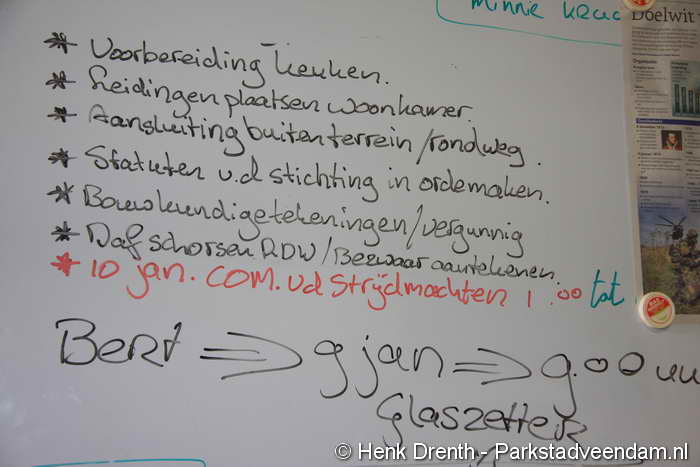 Minnie
Doelwit
* Voorbereiding keuken.
* Leidingen plaatsen woonkamer.
* Aansluiting buitenterrein/rondweg.
* Statuten v.d stichting in ordemaken.
* Bouwkundigetekeningen/vergunnig
* Daf schorsen RDW/Bezwaar aantekenen.
* 10 jan. COM. vd Strijdmachten 1.00 tot
Bert => 9 jan => 9.00 uu
Glaszetter
© Henk Drenth - Parkstadveendam.nl